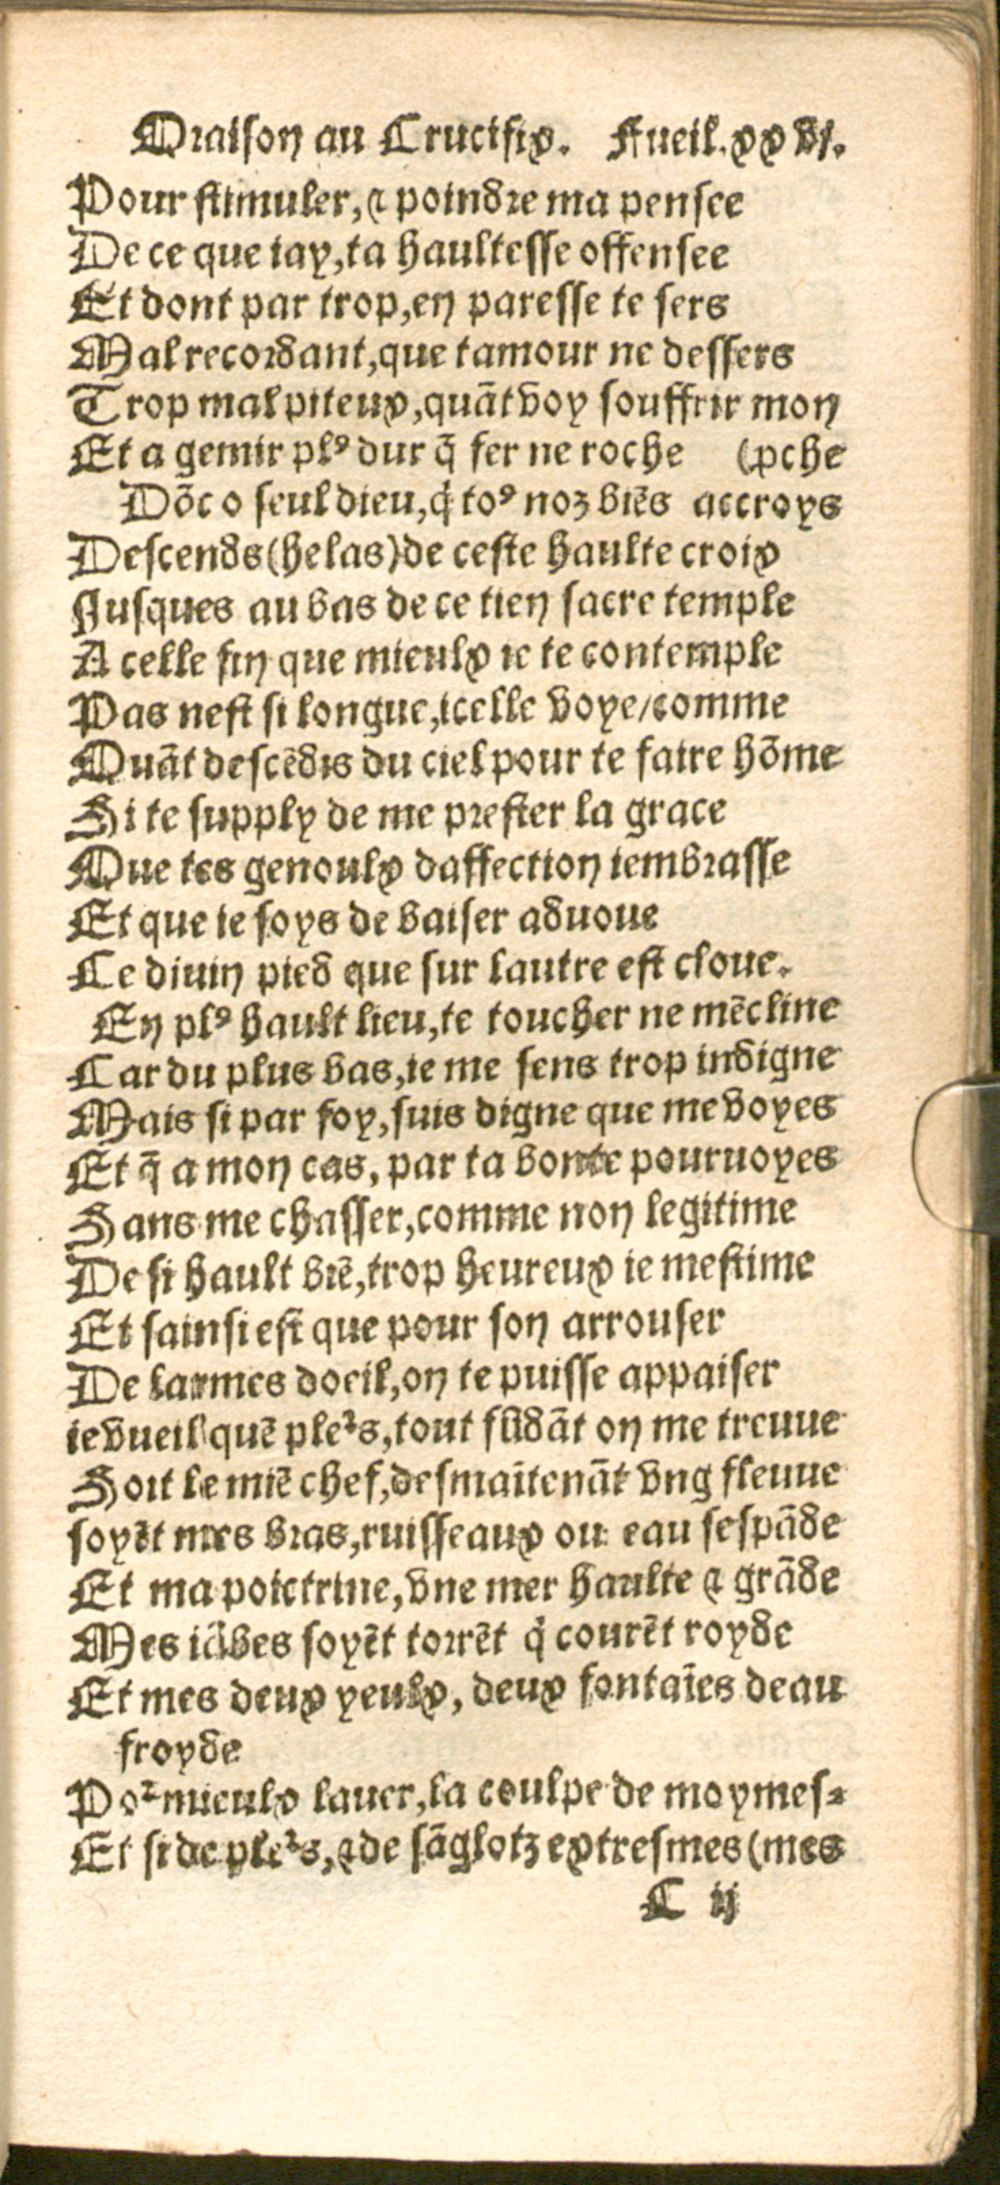 Oraison au Crucifix. Fueil. xxvj.
Pour stimuler, ⁊ poindre ma pensee
De ce que iay, ta haultesse offensee
Et dont par trop, en paresse te sers
Mal recordant, que tamour ne dessers
Trop mal piteux, quāt voy souffrir mon
Et a gemir plꝰ dur q̄ fer ne roche (ꝓche
Dōc o seul dieu, q̇ toꝰ noz biēs accroys
Descends (helas) de ceste haulte croix
Jusques au bas de ce tien sacre temple
A celle fin que mieulx ie te contemple
Pas nest si longue, icelle voye/comme
Quāt descēdis du ciel pour te faire hōme
Si te supply de me prester la grace
Que tes genoulx daffection iembrasse
Et que ie soys de baiser aduoue
Ce diuin pied que sur lautre est cloue.
En plꝰ hault lieu, te toucher ne mēcline
Car du plus bas, ie me sens trop indigne
Mais si par foy, suis digne que me voyes
Et q̄ a mon cas, par ta bonte pouruoyes
Sans me chasser, comme non legitime
De si hault biē, trop heureux ie mestime
Et sainsi est que pour son arrouser
De larmes doeil, on te puisse appaiser
ie vueil quē pleꝛs, tout fūdāt on me treuue
Soit le miē chef, desmaītenāt vng fleuue
soyēt mes bras, ruisseaux ou eau sespāde
Et ma poictrine, vne mer haulte ⁊ grāde
Mes iābes soyēt torrēt q̇ courēt royde
Et mes deux yeulx, deux fontaīes deau
froyde
Poꝛ mieulx lauer, la coulpe de moymes⸗
Et si de pleꝛs, ⁊ de sāglotz extresmes (mes
C ij